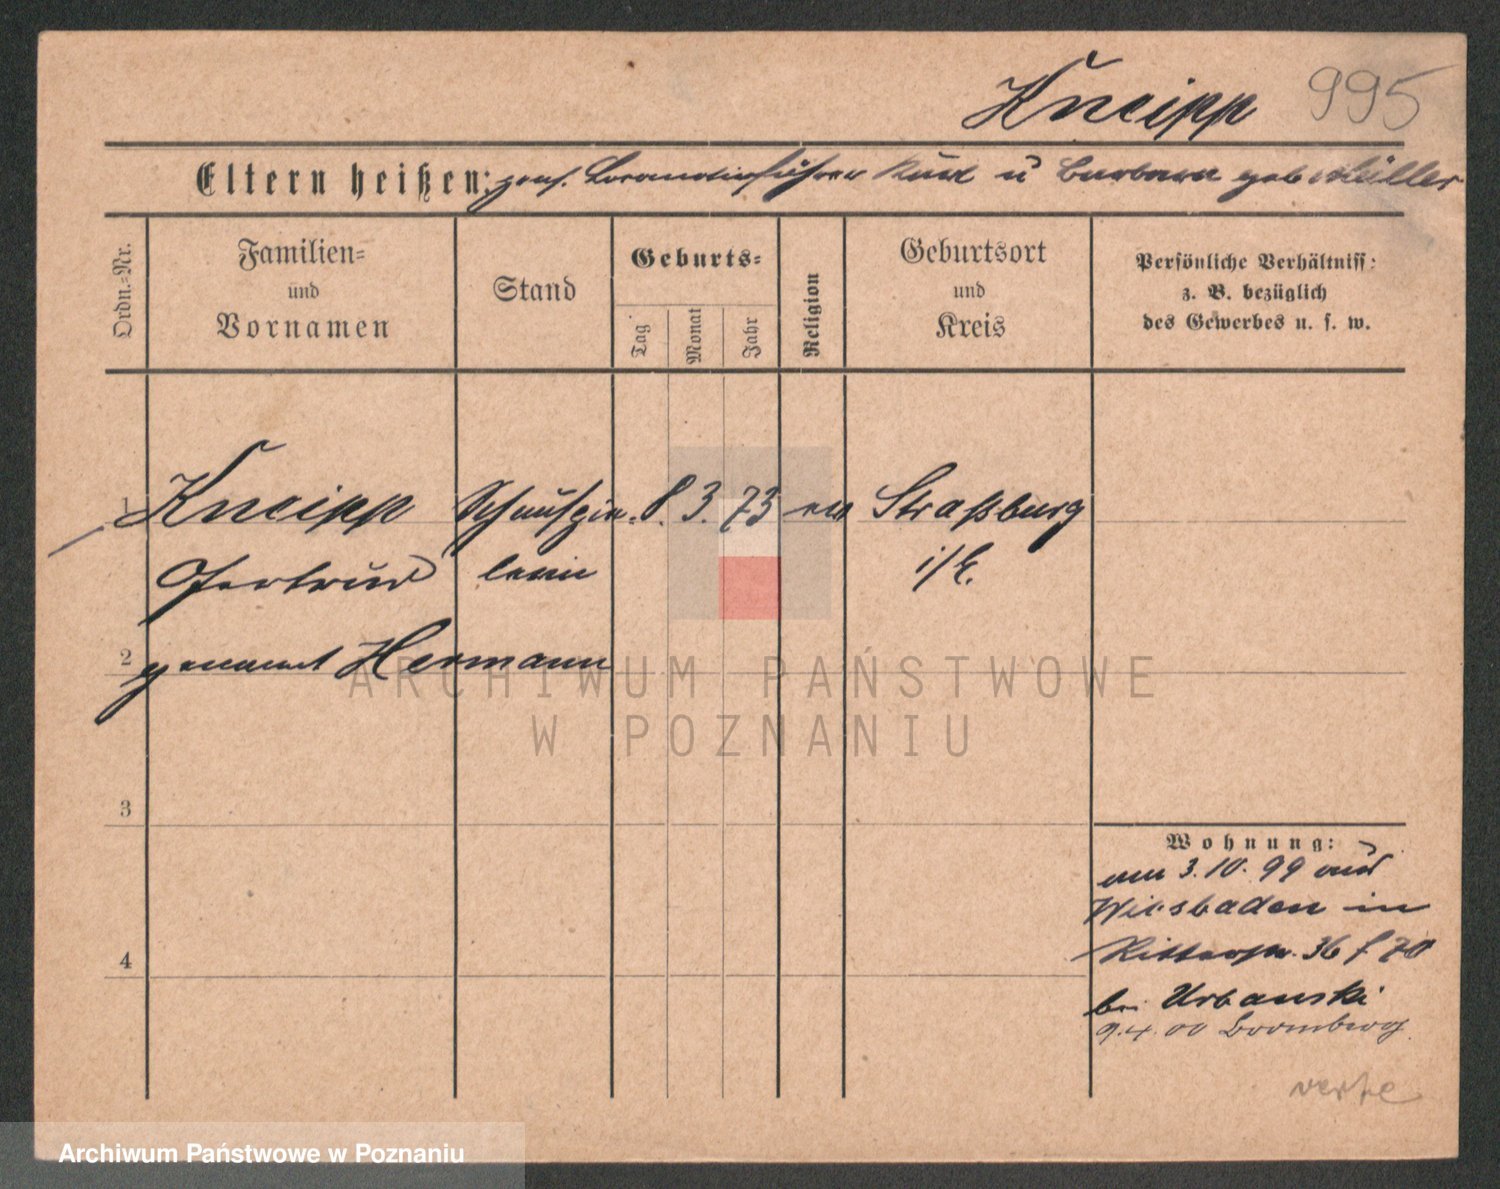 Kneipp 995
Eltern heißen: pens. Locomotivführer Kurd u Barbara geb Müller
Ordn.-Nr.
Familien-
und
Vornamen
Stand
Geburts-
Tag
Monat
Jahr
Religion
Geburtsort
und
Kreis
Persönliche Verhältniss:
z. B. bezüglich
des Gewerbes u. s. w.
1 Kneipp Schauspie- 8. 3. 73 ev Straßburg
Gertrud lerin i/E.
2 genannt Hermann
3
4
Wohnung:
am 3.10.99 aus
Wiesbaden in
Ritterstr. 36
bei Urbanski
9.4.00 Bromberg
ARCHIWUM PAŃSTWOWE
W POZNANIU
Archiwum Państwowe w Poznaniu